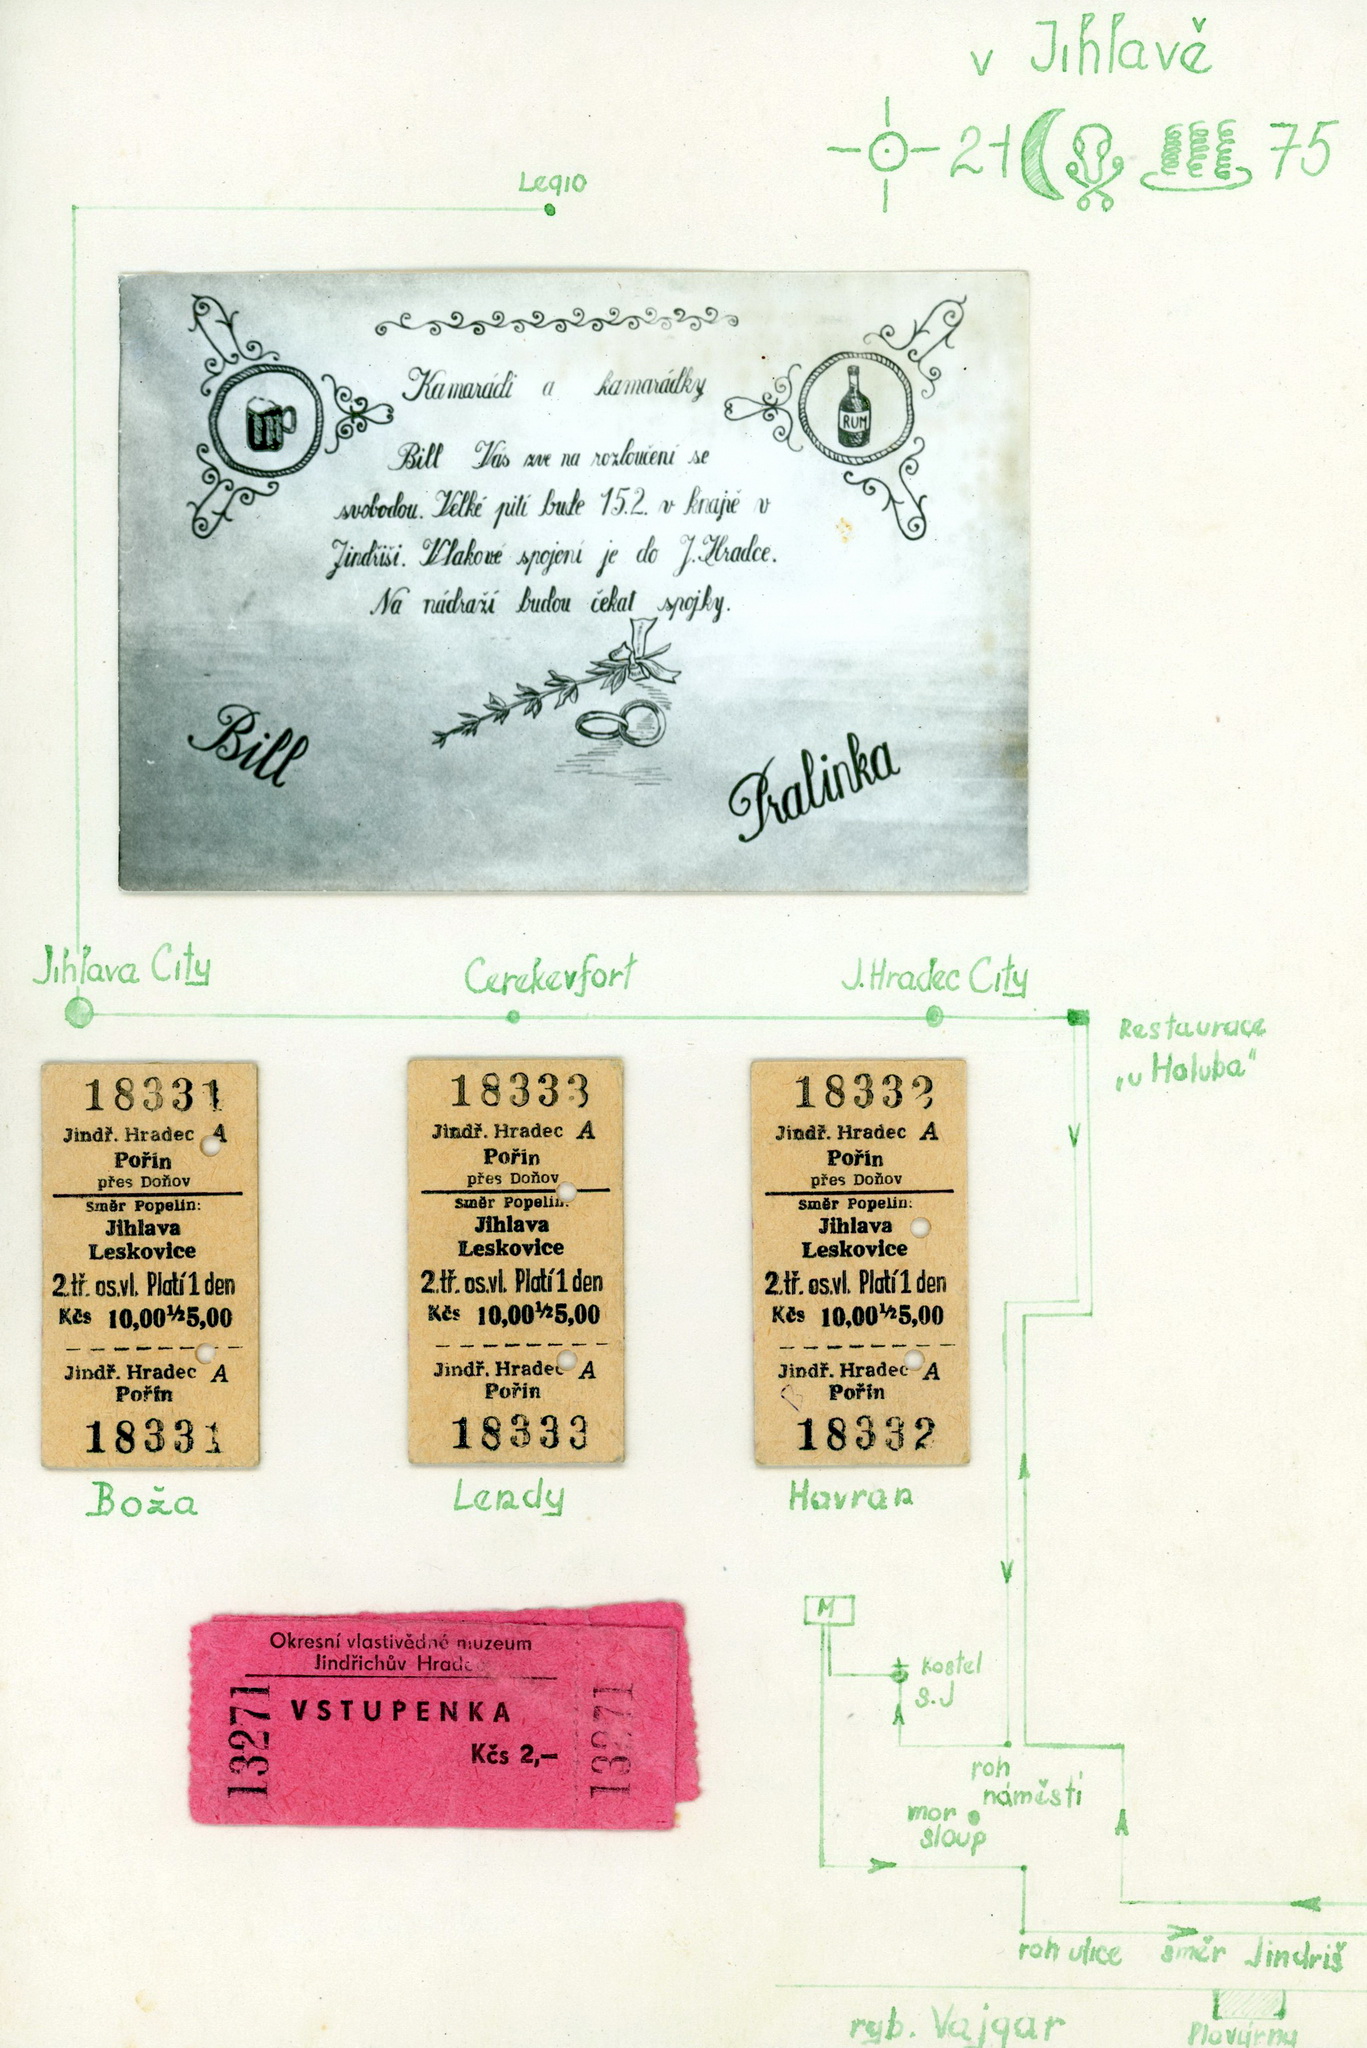 v Jihlavě
21 75
Legio
Kamarádi a kamarádky
RUM
Bill Vás zve na rozloučení se
svobodou. Velké pití bude 15.2. v knajpě v
Jindřiši. Vlakové spojení je do J. Hradce.
Na nádraží budou čekat spojky.
Bill
Pralinka
Jihlava City
Cerekevfort
J. Hradec City
Restaurace
„u Holuba“
18331
Jindř. Hradec A
Pořín
přes Doňov
směr Popelín:
Jihlava
Leskovice
2.tř. os.vl. Platí 1 den
Kčs 10,00 ½ 5,00
Jindř. Hradec A
Pořín
18331
Boža
18333
Jindř. Hradec A
Pořín
přes Doňov
směr Popelín:
Jihlava
Leskovice
2.tř. os.vl. Platí 1 den
Kčs 10,00 ½ 5,00
Jindř. Hradec A
Pořín
18333
Lendy
18332
Jindř. Hradec A
Pořín
přes Doňov
směr Popelín:
Jihlava
Leskovice
2.tř. os.vl. Platí 1 den
Kčs 10,00 ½ 5,00
Jindř. Hradec A
Pořín
18332
Havran
Okresní vlastivědné muzeum
Jindřichův Hradec
VSTUPENKA
Kčs 2,–
13271
13271
M
Kostel
S.J
roh
náměstí
mor
sloup
roh ulice
směr Jindriš
ryb. Vajgar
Plovárna